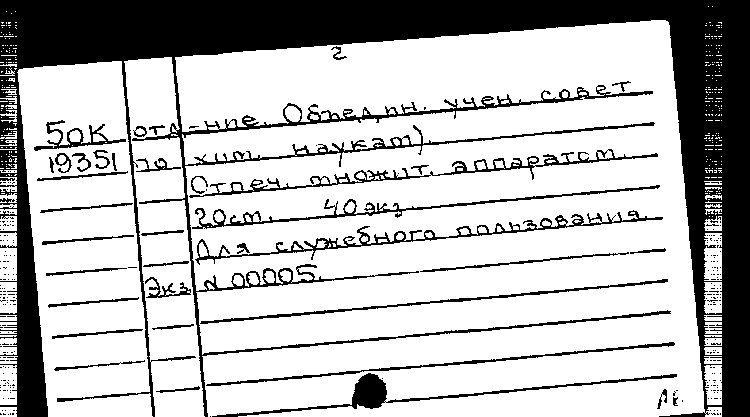 2
50К отд-ние. Объедин. учен. совет
19351 по хим. наукам).
Отпеч. множит. аппаратом.
20 ст. 40 экз.
Для служебного пользования.
Экз. № 00005.